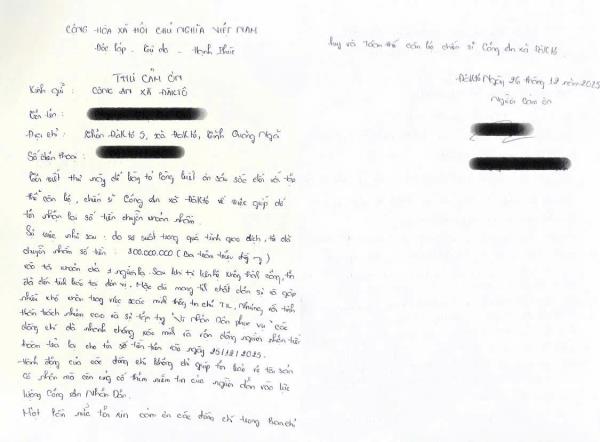 CỘNG HÒA XÃ HỘI CHỦ NGHĨA VIỆT NAM
Độc lập - Tự do - Hạnh Phúc
THƯ CẢM ƠN
Kính gửi : CÔNG AN XÃ ĐĂKTÔ
Tôi tên :
Địa chỉ : Khối ĐăkTô 5, xã ĐăkTô, tỉnh Quảng Ngãi
Số điện thoại :
Tôi viết thư này để bày tỏ lòng biết ơn sâu sắc đối với tập
thể cán bộ, chiến sĩ Công An xã ĐăkTô về việc giúp đỡ
tôi nhận lại số tiền chuyển khoản nhầm.
Sự việc như sau : do sơ suất trong quá trình giao dịch, tôi đã
chuyển nhầm số tiền : 300.000.000 ( Ba trăm triệu đồng )
vào tài khoản của 1 người lạ. Sau khi tự liên hệ không thành công, tôi
đã đến trình báo tại đơn vị. Mặc dù mang tính chất dân sự và gặp
nhiều khó khăn trong việc xác minh thông tin chủ TK, Nhưng với tinh
thần trách nhiệm cao và sự tận tụy "Vì Nhân Dân phục vụ" các
đồng chí đã nhanh chóng xác minh và vận động người nhận tiền
hoàn trả lại cho tôi số tiền trên vào ngày 25/12/2025.
Hành động của các đồng chí không chỉ giúp tôi bảo vệ tài sản
cá nhân mà còn củng cố thêm niềm tin của người dân vào lực
lượng Công An Nhân Dân.
Một lần nữa tôi xin cảm ơn các đồng chí trong Ban chỉ
huy và Toàn thể cán bộ chiến sĩ Công An xã ĐăkTô.
ĐăkTô Ngày 26 tháng 12 năm 2025
Người cảm ơn